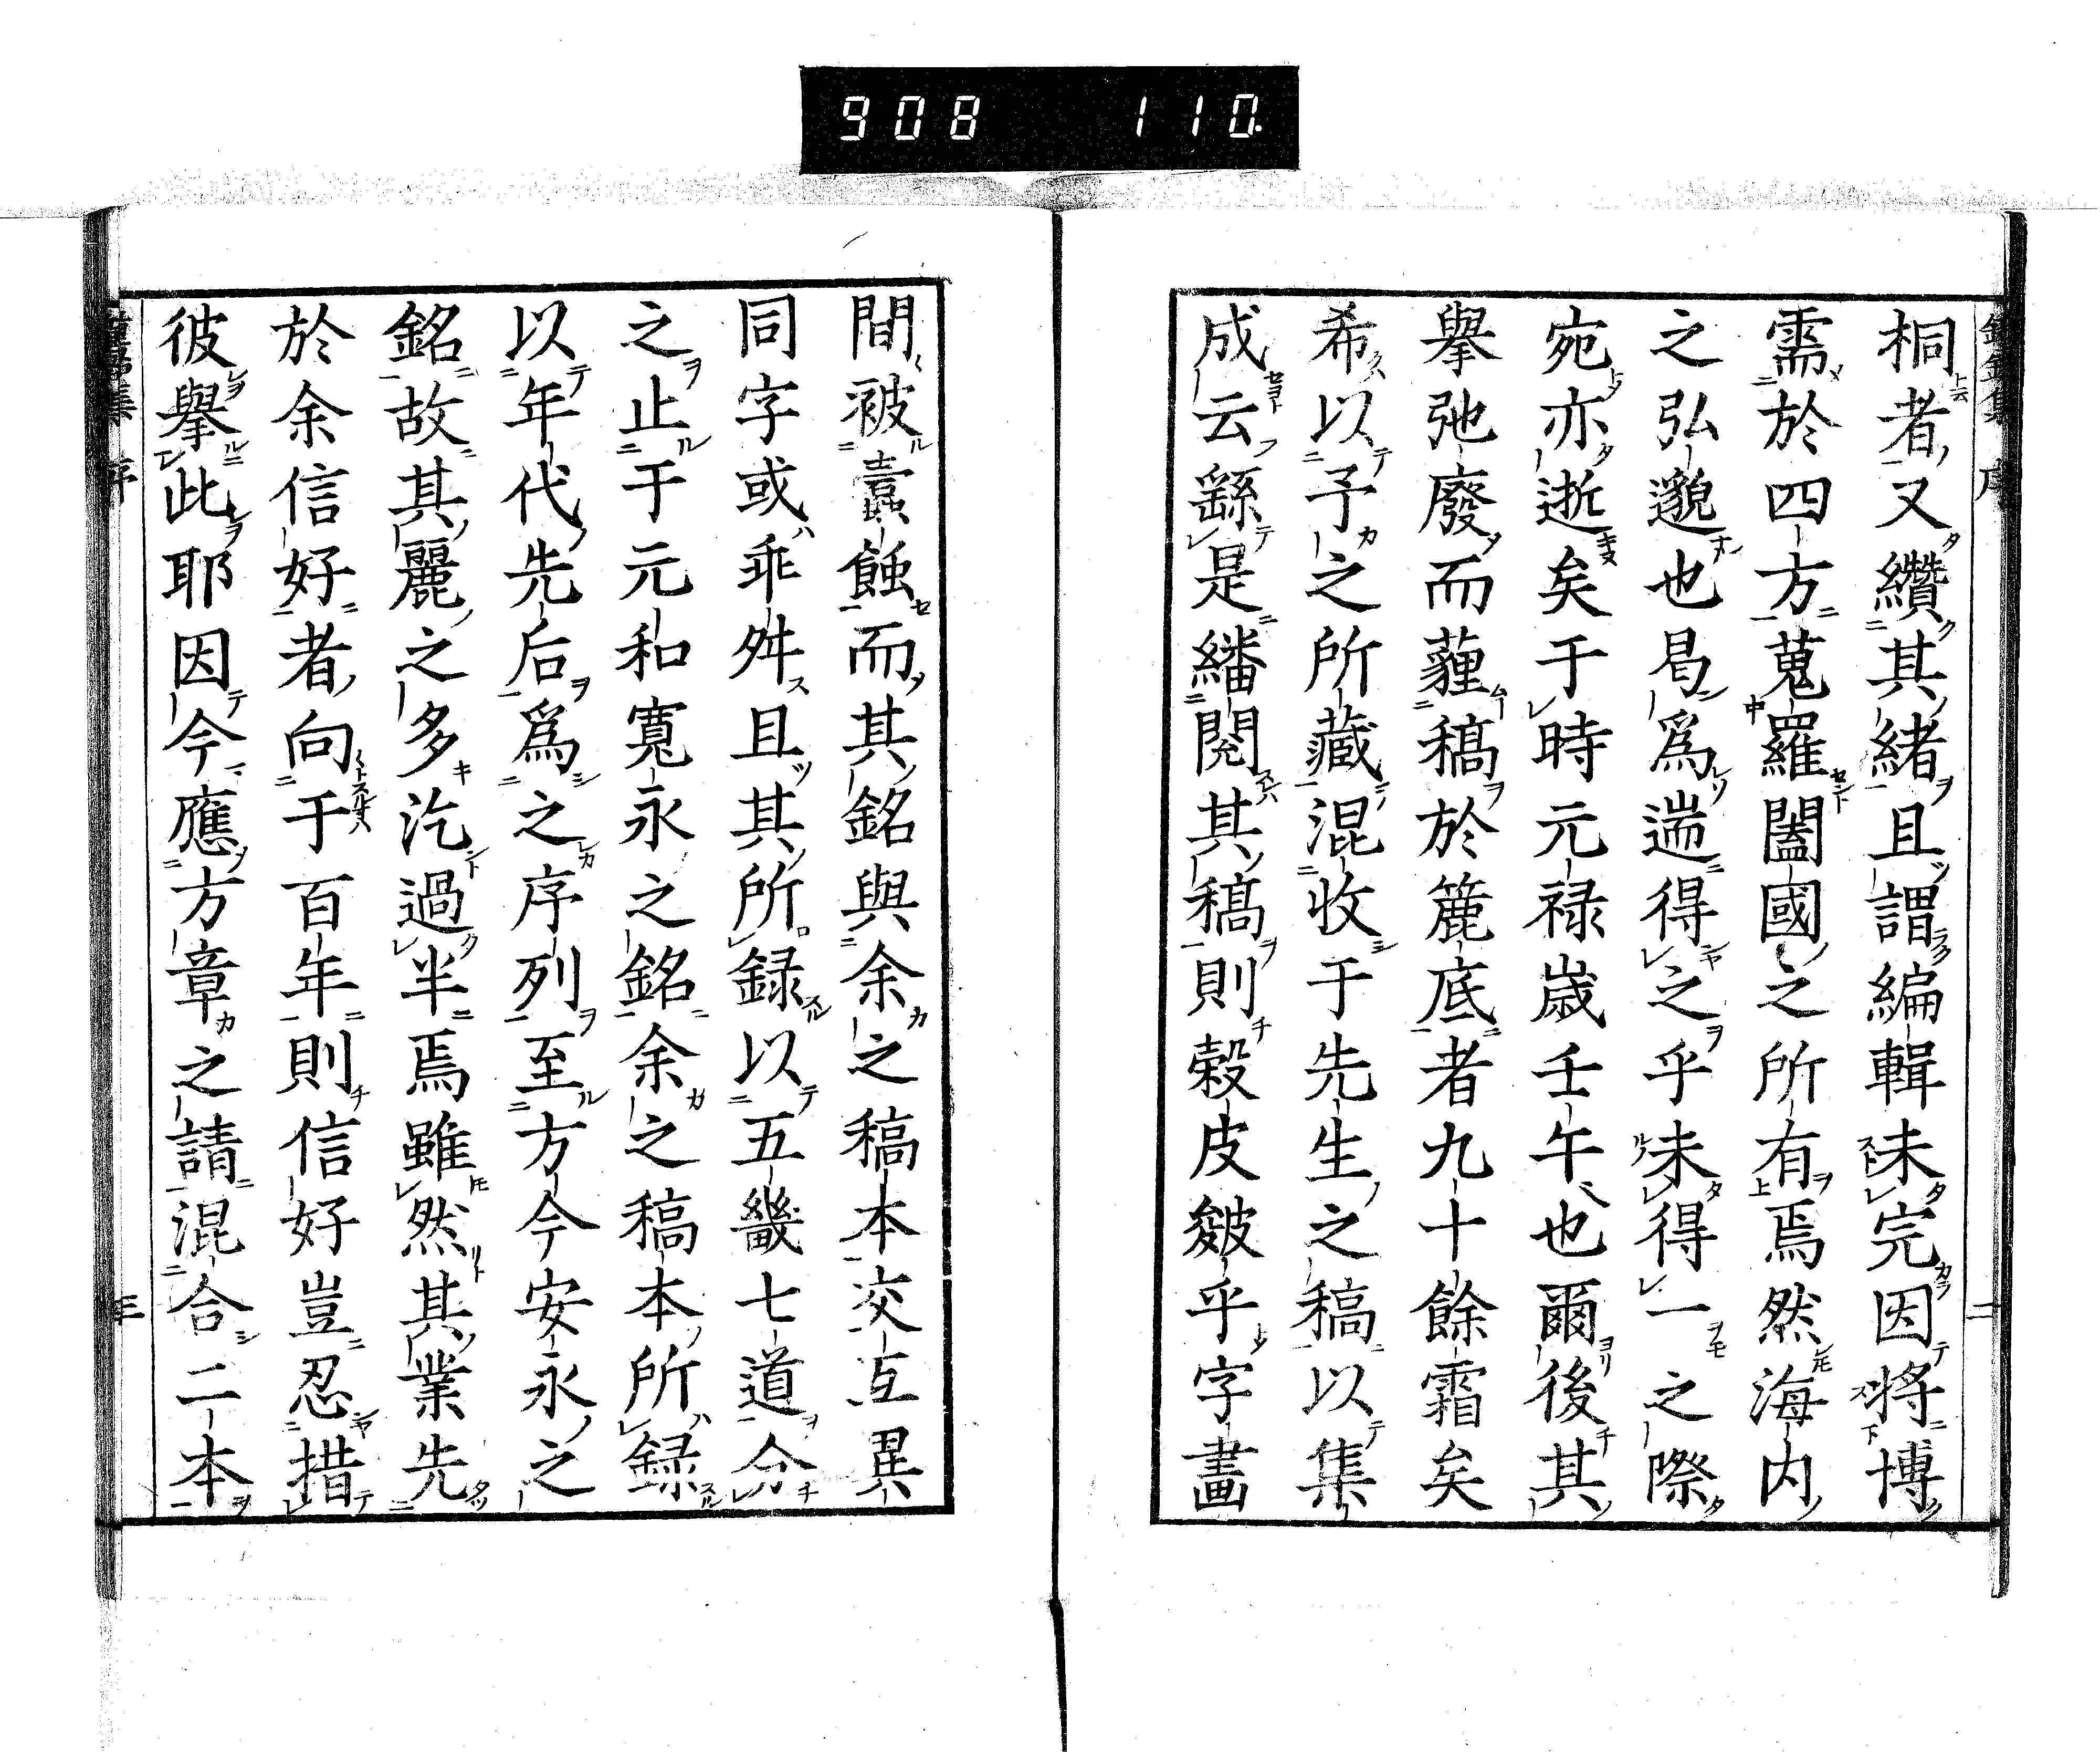 908 110.
桐者又纘其緒且謂編輯未完因將博
需於四方蒐羅闔國之所有焉然海内
之弘邈也曷爲遄得之乎未得一之際
宛亦逝矣于時元禄歲壬午也爾後其
擧弛廢而薶稿於簏底者九十餘霜矣
希以子之所藏混收于先生之稿以集
成云繇是繙閱其稿則穀皮皴乎字畫
間被蠹蝕而其銘與余之稿本交互異
同字或乖舛且其所録以五畿七道分
之止于元和寬永之銘余之稿本所録
以年代先后爲之序列至方今安永之
銘故其麗之多汔過半焉雖然其業先
於余信好者向于百年則信好豈忍措
彼擧此耶因今應方章之請混合二本